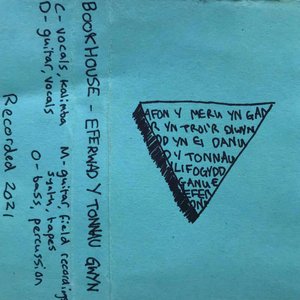 BOOKHOUSE - EFERWAD Y TONNAU GWYN
C - vocals, kalimba
D - guitar, vocals
M - guitar, field recording
synth, tapes
O - bass, percussion
Recorded 2021
AFON Y MERU YN GAD
R YN TROI'R DIWN
DD YN EI DANU
D Y TONNAU
LIFOGYDD
GANU E
EFER
ONN